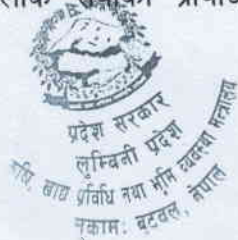 प्रदेश सरकार
लुम्बिनी प्रदेश
कृषि, खाद्य प्रविधि तथा भूमि व्यवस्था मन्त्रालय
मुकाम: बुटवल, नेपाल